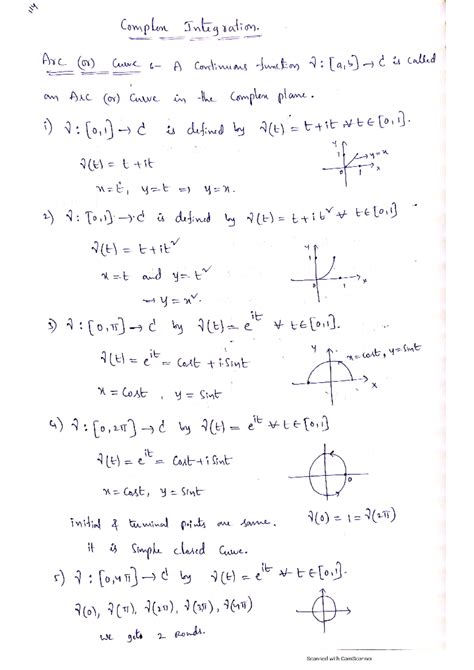 114
Complex Integration.
Arc (or) Curve :- A Continuous function γ : [a,b] → ₵ is called
an Arc (or) Curve in the Complex plane.
i) γ : [0,1] → ₵ is defined by γ(t) = t + it ∀ t ∈ [0,1].
γ(t) = t + it
x = t, y = t ⇒ y = x.
y
1
y = x
0 1 x
2) γ : [0,1] → ₵ is defined by γ(t) = t + it² ∀ t ∈ [0,1]
γ(t) = t + it²
x = t and y = t²
⇒ y = x².
y
1
0 1 x
3) γ : [0,π] → ₵ by γ(t) = e^{it} ∀ t ∈ [0,1].
γ(t) = e^{it} = Cost + i Sint
x = Cost, y = Sint
y
x = cost, y = Sint
x
4) γ : [0,2π] → ₵ by γ(t) = e^{it} ∀ t ∈ [0,1]
γ(t) = e^{it} = Cost + i Sint
x = Cost, y = Sint
0
initial & terminal points are same. γ(0) = 1 = γ(2π)
it is Simple closed Curve.
5) γ : [0,4π] → ₵ by γ(t) = e^{it} ∀ t ∈ [0,1].
γ(0), γ(π), γ(2π), γ(3π), γ(4π)
we gets 2 rounds.
Scanned with CamScanner